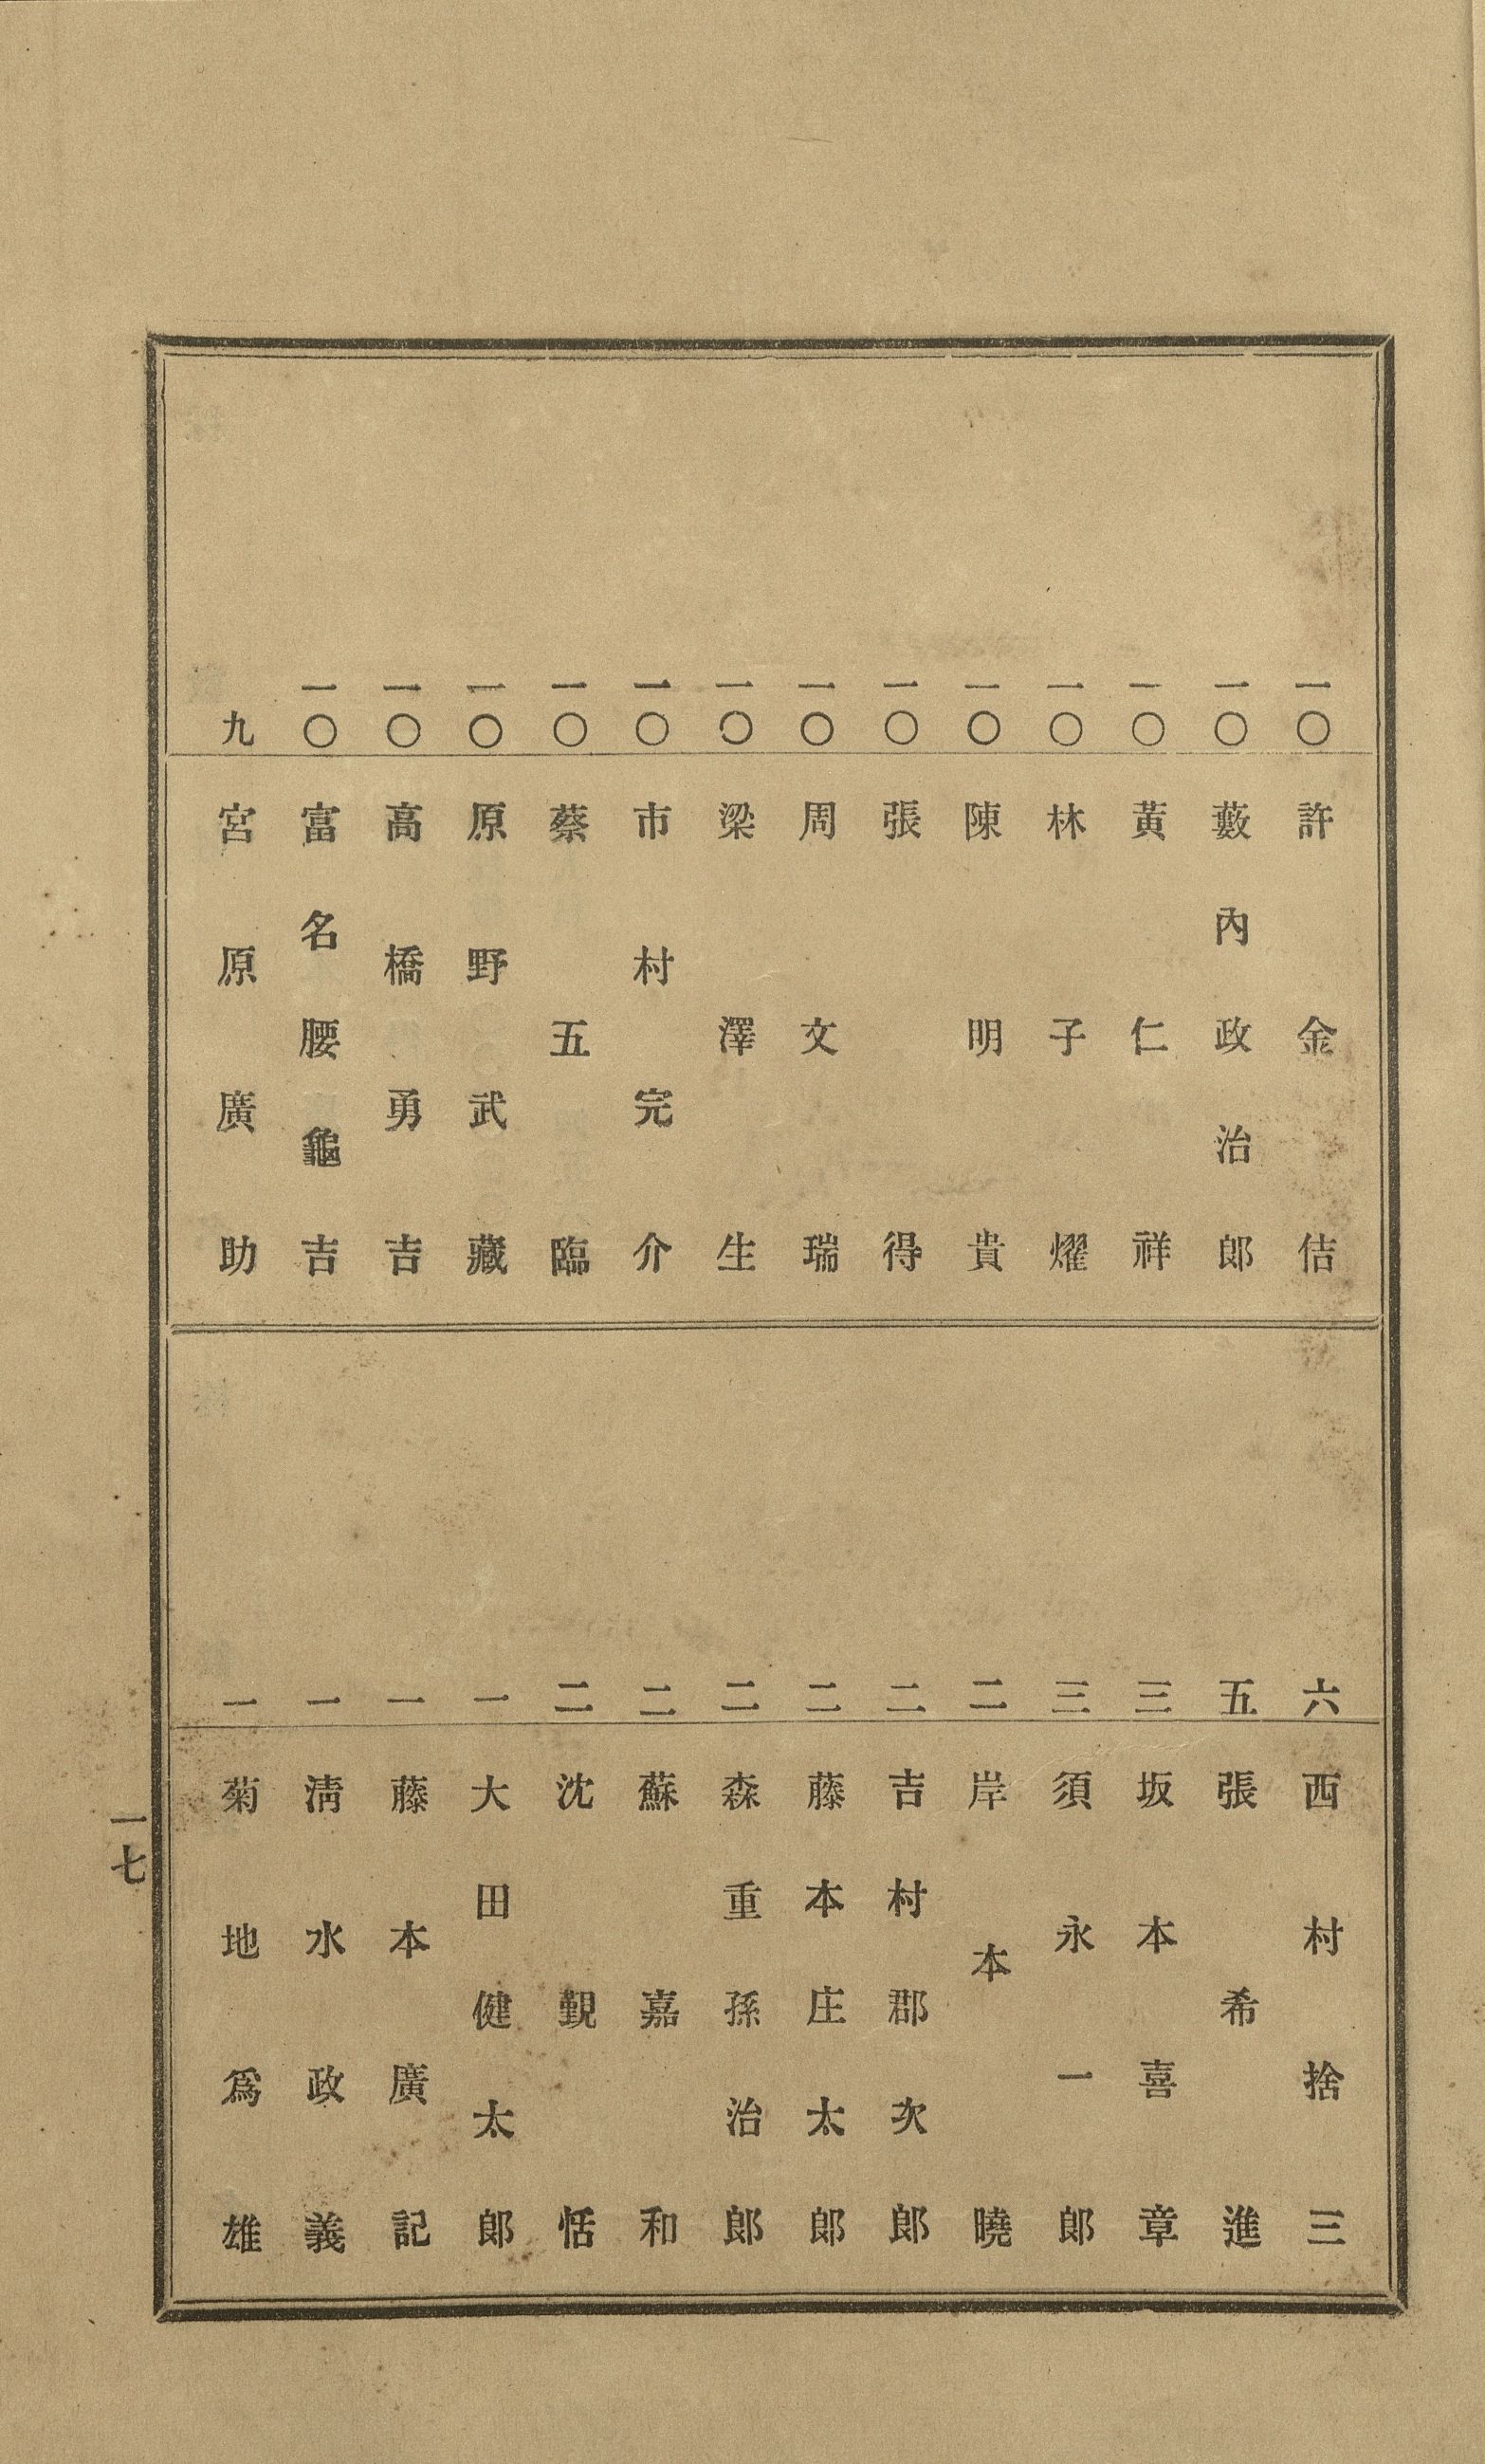 一〇 許金佶
一〇 藪內政治郎
一〇 黃仁祥
一〇 林子燿
一〇 陳明貴
一〇 張得
一〇 周文瑞
一〇 梁澤生
一〇 市村完介
一〇 蔡五臨
一〇 原野武藏
一〇 高橋勇吉
一〇 富名腰龜吉
九 宮原廣助
六 西村捨三
五 張希進
三 坂本喜章
三 須永一郎
二 岸本曉
二 吉村郡次郎
二 藤本庄太郎
二 森重孫治郎
二 蘇嘉和
二 沈覲恬
一 大田健太郎
一 藤本廣記
一 淸水政義
一 菊地爲雄
一七